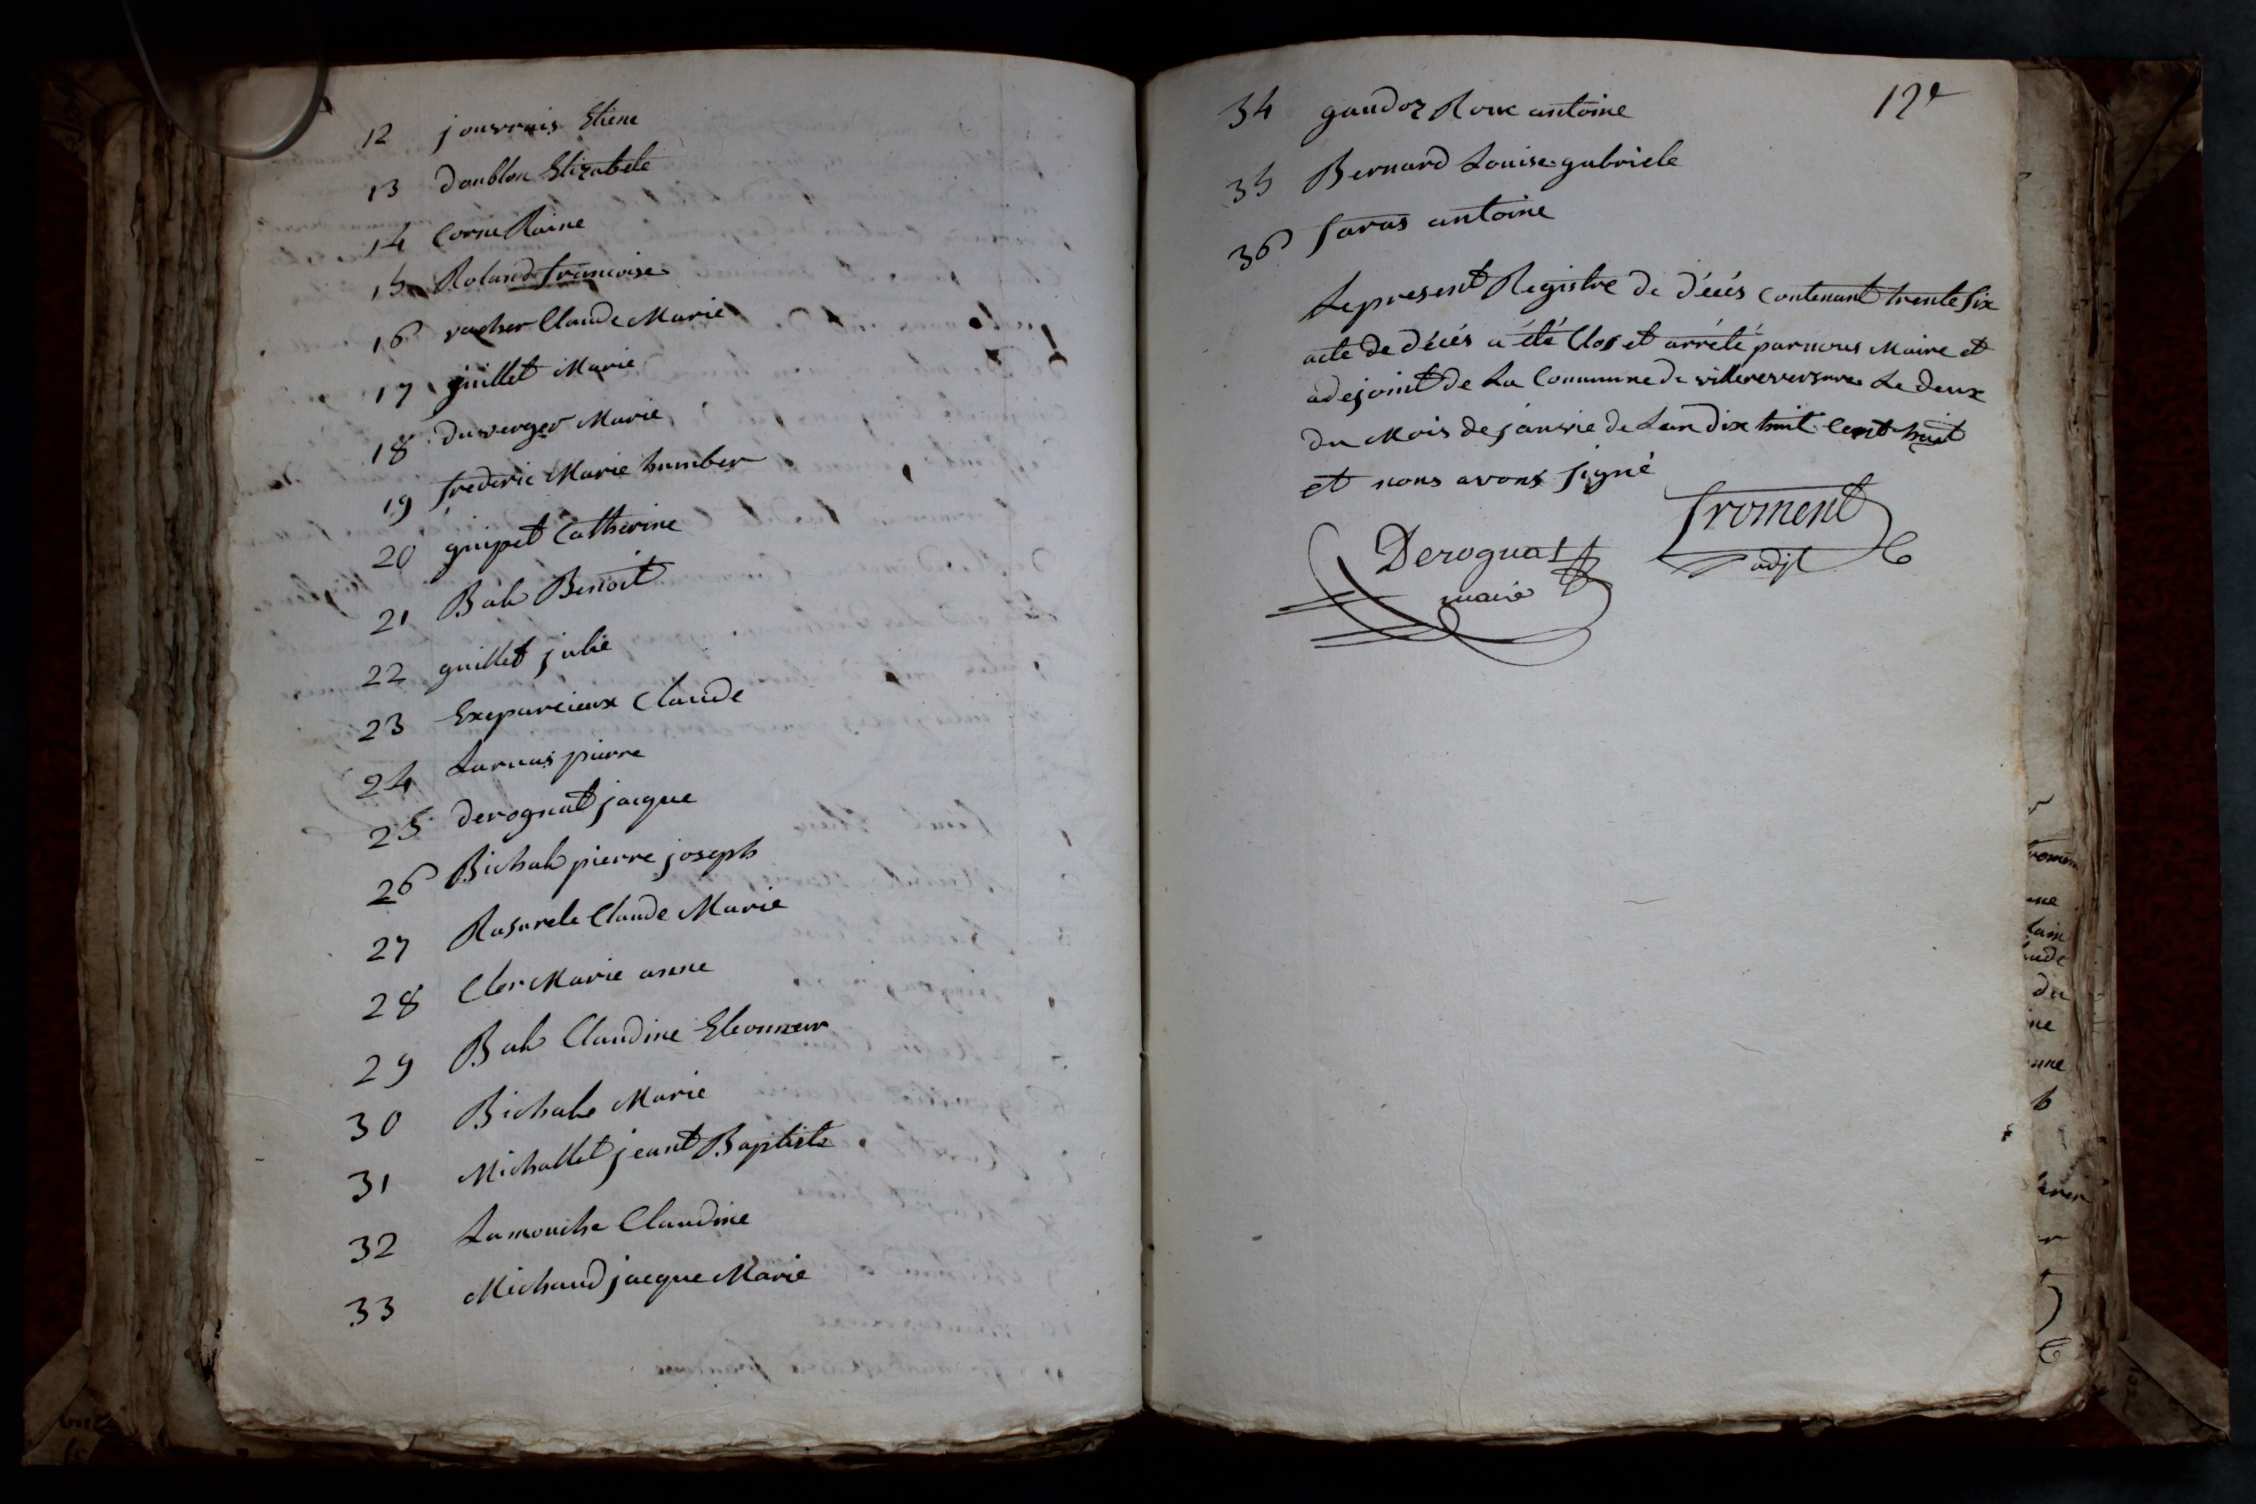 12 jouvrais Etiene
13 doublon Elizabete
14 Corne Raine
15 Roland francoise
16 vacher Claude Marie
17 guillet Marie
18 duverger Marie
19 frederic Marie humber
20 guipet Catherine
21 Bah Benoit
22 guillet julie
23 Exeparcieux Claude
24 Larnas pierre
25 derognat jacque
26 Bichah pierre joseph
27 Rasurele Claude Marie
28 Cler Marie anne
29 Bah Claudine Eleonneur
30 Bichahe Marie
31 Michallet jeant Baptiste
32 Lamouche Claudine
33 Michaud jacque Marie
12e
34 gaudoz Roux antoine
35 Bernard Louise gabriele
36 Saras antoine
Le present Registre de décés contenant trente six
acte de décés a été Clos et arrété par nous Maire et
adejoint de La Commune de villereversure Le deux
du Mois de janvie de Lan dix huit Cent huit
et nous avons signé
Derognat
maire
froment
adjt